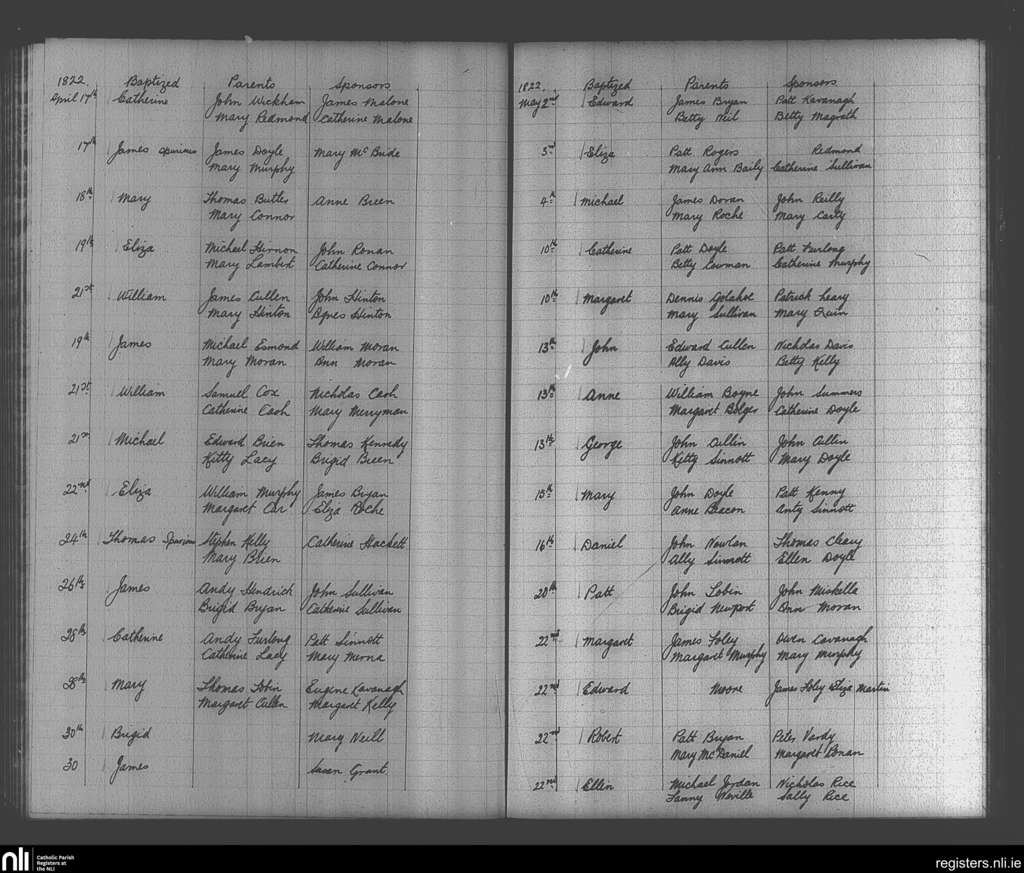 1822. Baptized Parents Sponsors
April 17th Catherine John Wickham James Malone
Mary Redmond Catherine Malone
17th James Spurious James Doyle Mary McBride
Mary Murphy
18th Mary Thomas Butler Anne Breen
Mary Connor
19th Eliza Michael Hernon John Ronan
Mary Lambert Catherine Connor
21st William James Cullen John Hinton
Mary Hinton Agnes Hinton
19th James Michael Esmond William Moran
Mary Moran Ann Moran
21st William Samuel Cox Nicholas Cash
Catherine Cash Mary Merryman
21st Michael Edward Brien Thomas Kennedy
Kitty Lacy Brigid Breen
22nd Eliza William Murphy James Bryan
Margaret Car Eliza Roche
24th Thomas Spurious Stephen Kelly Catherine Hackett
Mary Brien
26th James Andy Hendrich John Sullivan
Brigid Bryan Catherine Sullivan
28th Catherine Andy Furlong Patt Sinnott
Catherine Lacy Mary Merna
28th Mary Thomas Tobin Eugene Kavanagh
Margaret Cullen Margaret Kelly
30th Brigid Mary Neill
30 James Susan Grant
1822. Baptized Parents Sponsors
May 2nd Edward James Bryan Patt Kavanagh
Betty Neil Betty Magrath
3rd Eliza Patt Rogers Redmond
Mary Ann Baily Catherine Sullivan
4th Michael James Doran John Reilly
Mary Roche Mary Carty
10th Catherine Patt Doyle Patt Furlong
Betty Cowman Catherine Murphy
10th Margaret Dennis Golahoe Patrick Leary
Mary Sullivan Mary Quin
13th John Edward Cullen Nicholas Davis
Ally Davis Betty Kelly
13th Anne William Boyne John Summers
Margaret Bolger Catherine Doyle
13th George John Cullin John Cullen
Kitty Sinnott Mary Doyle
15th Mary John Doyle Patt Kenny
Anne Deacon Anty Sinnott
16th Daniel John Nowlan Thomas Cleary
Ally Sinnott Ellen Doyle
20th Patt John Tobin John Miskella
Brigid Newport Ann Moran
22nd Margaret James Foley Owen Cavanagh
Margaret Murphy Mary Murphy
22nd Edward Moone James Foley Eliza Martin
22nd Robert Patt Bryan Peter Vardy
Mary McDaniel Margaret Ronan
22nd Ellen Michael Jordan Nicholas Rice
Fanny Neville Sally Rice
nli Catholic Parish
Registers at
the NLI
registers.nli.ie